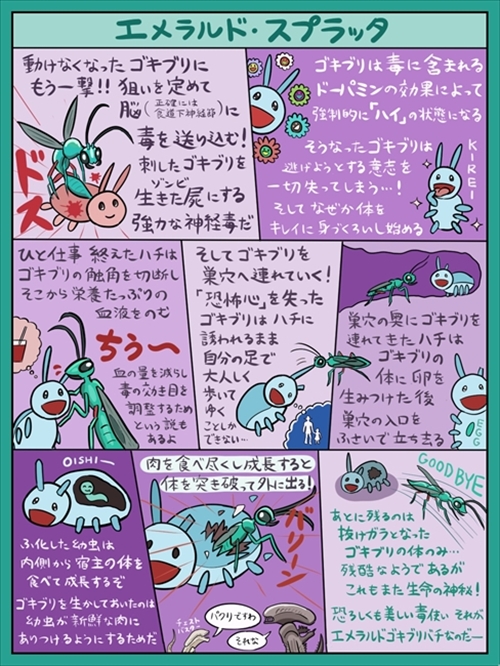 エメラルド・スプラッタ
動けなくなった ゴキブリに
もう一撃!! 狙いを定めて
脳(正確には食道下神経節)に
毒を送り込む!
刺したゴキブリを
生きた屍にする
ゾンビ
強力な神経毒だ
ドス
ゴキブリは毒に含まれる
ドーパミンの効果によって
強制的に「ハイ」の状態になる
そうなったゴキブリは
逃げようとする意志を
一切失ってしまう…!
そしてなぜか体を
キレイに身づくろいし始める
KIREI
ひと仕事 終えたハチは
ゴキブリの触角を切断し
そこから栄養たっぷりの
血液をのむ
ちぅ〜
血の量を減らし
毒の効き目を
調整するため
という説も
あるよ
そしてゴキブリを
巣穴へ連れていく!
「恐怖心」を失った
ゴキブリは ハチに
誘われるまま
自分の足で
大人しく
歩いて
ゆく
ことしか
できない…
巣穴の奥にゴキブリを
連れてきたハチは
ゴキブリの
体に卵を
生みつけた後
巣穴の入口を
ふさいで立ち去る
EGG
OISHI―
ふ化した幼虫は
内側から宿主の体を
食べて成長するぞ
ゴキブリを生かしておいたのは
幼虫が新鮮な肉に
ありつけるようにするためだ
肉を食べ尽くし成長すると
体を突き破って外に出る!
バリーン
チェスト
バスター
パクリですわ
それな
GOOD BYE
あとに残るのは
抜けガラとなった
ゴキブリの体のみ…
残酷なようであるが
これもまた生命の神秘!
恐ろしくも美しい毒使い それが
エメラルドゴキブリバチなのだー